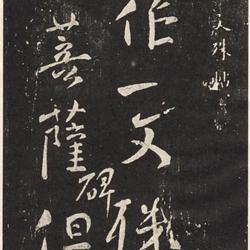 文殊帖
作一文殊
菩薩碑但